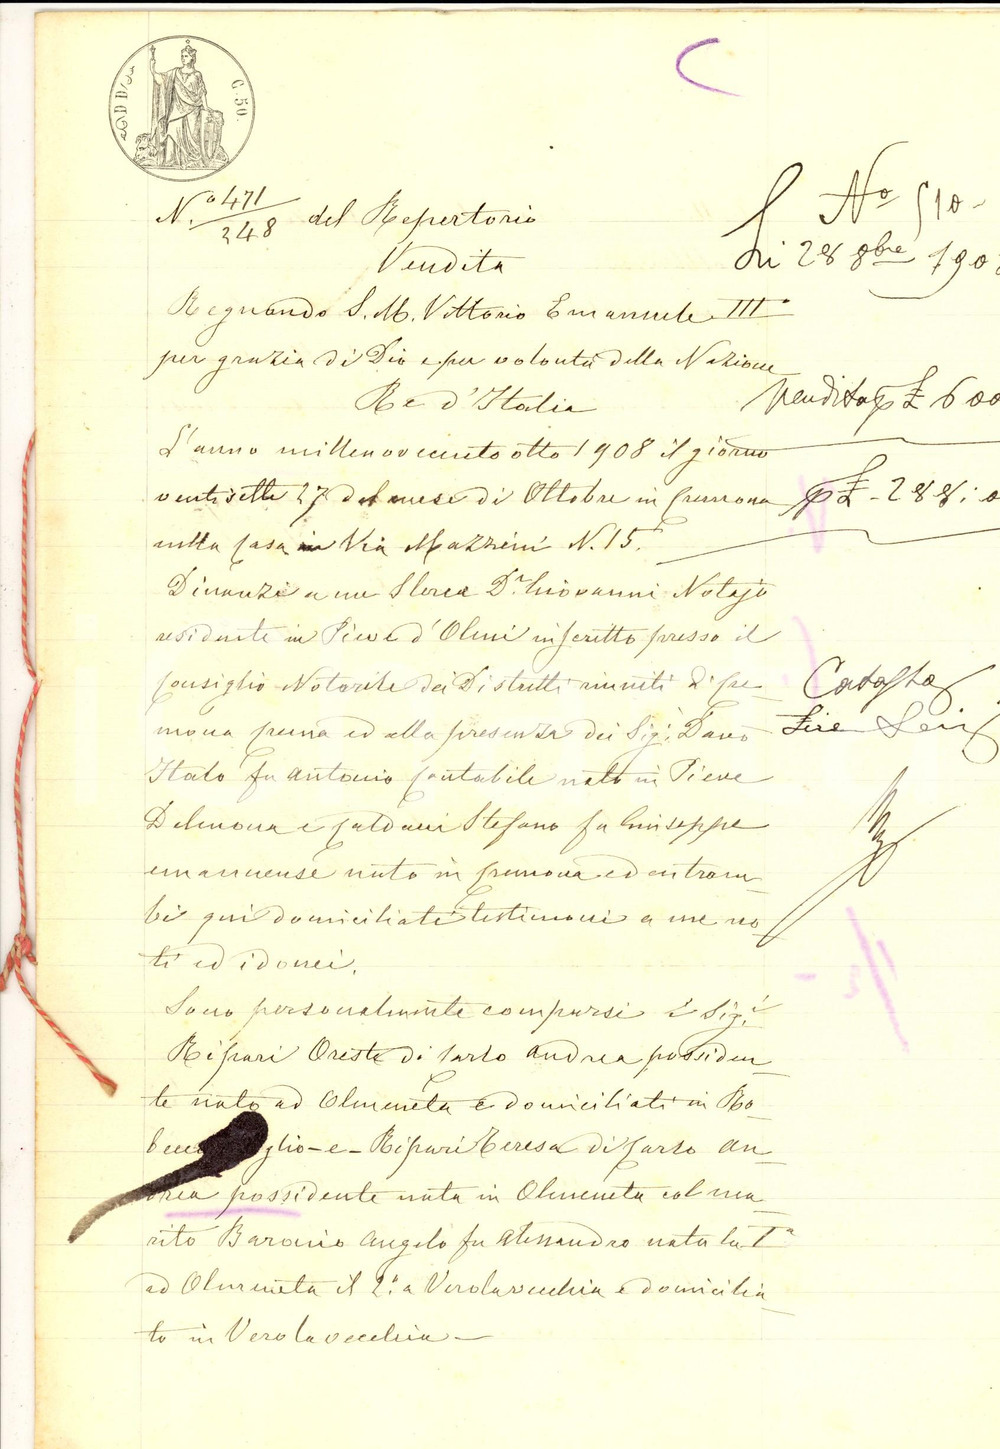 C. 50.
N.° 471/348 del Repertorio
Vendita
Regnando S. M. Vittorio Emanuele III°
per grazia di Dio e per volontà della Nazione
Re d'Italia
L'anno millenovecento otto 1908 il giorno
ventisette 27 del mese di Ottobre in Cremona
nella Casa in Via Mazzini N. 15.
Dinanzi a me Dr. Giovanni Notajo
residente in Pieve d'Olmi inscritto presso il
Consiglio Notarile dei Distretti riuniti di Cre-
mona Crema ed alla presenza dei Sig.i
Italo fu Antonio Contabile nato in Pieve
Delmona e Caldani Stefano fu Giuseppe
amanuense nato in Cremona ed entram-
bi qui domiciliati testimoni a me no-
ti ed idonei.
Sono personalmente comparsi i Sig.i
Ripari Oreste di Carlo Andrea possiden-
te nato ad Olmeneta e domiciliati in Ro-
becco e Ripari Teresa di Carlo An-
drea possidente nata in Olmeneta col ma-
rito Baronio Angelo fu Alessandro nata la 1a
ad Olmeneta il 2° a Verolavecchia e domicilia-
to in Verolavecchia
N° 510
Li 28 8bre 1908
Vendita p £ 600
p £ 288:0
Catasto
Lire Sei